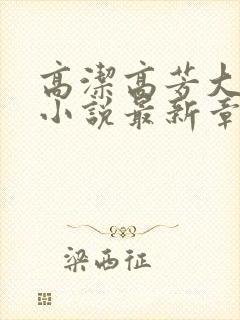 高潔高芳大
小說最新章
梁西征